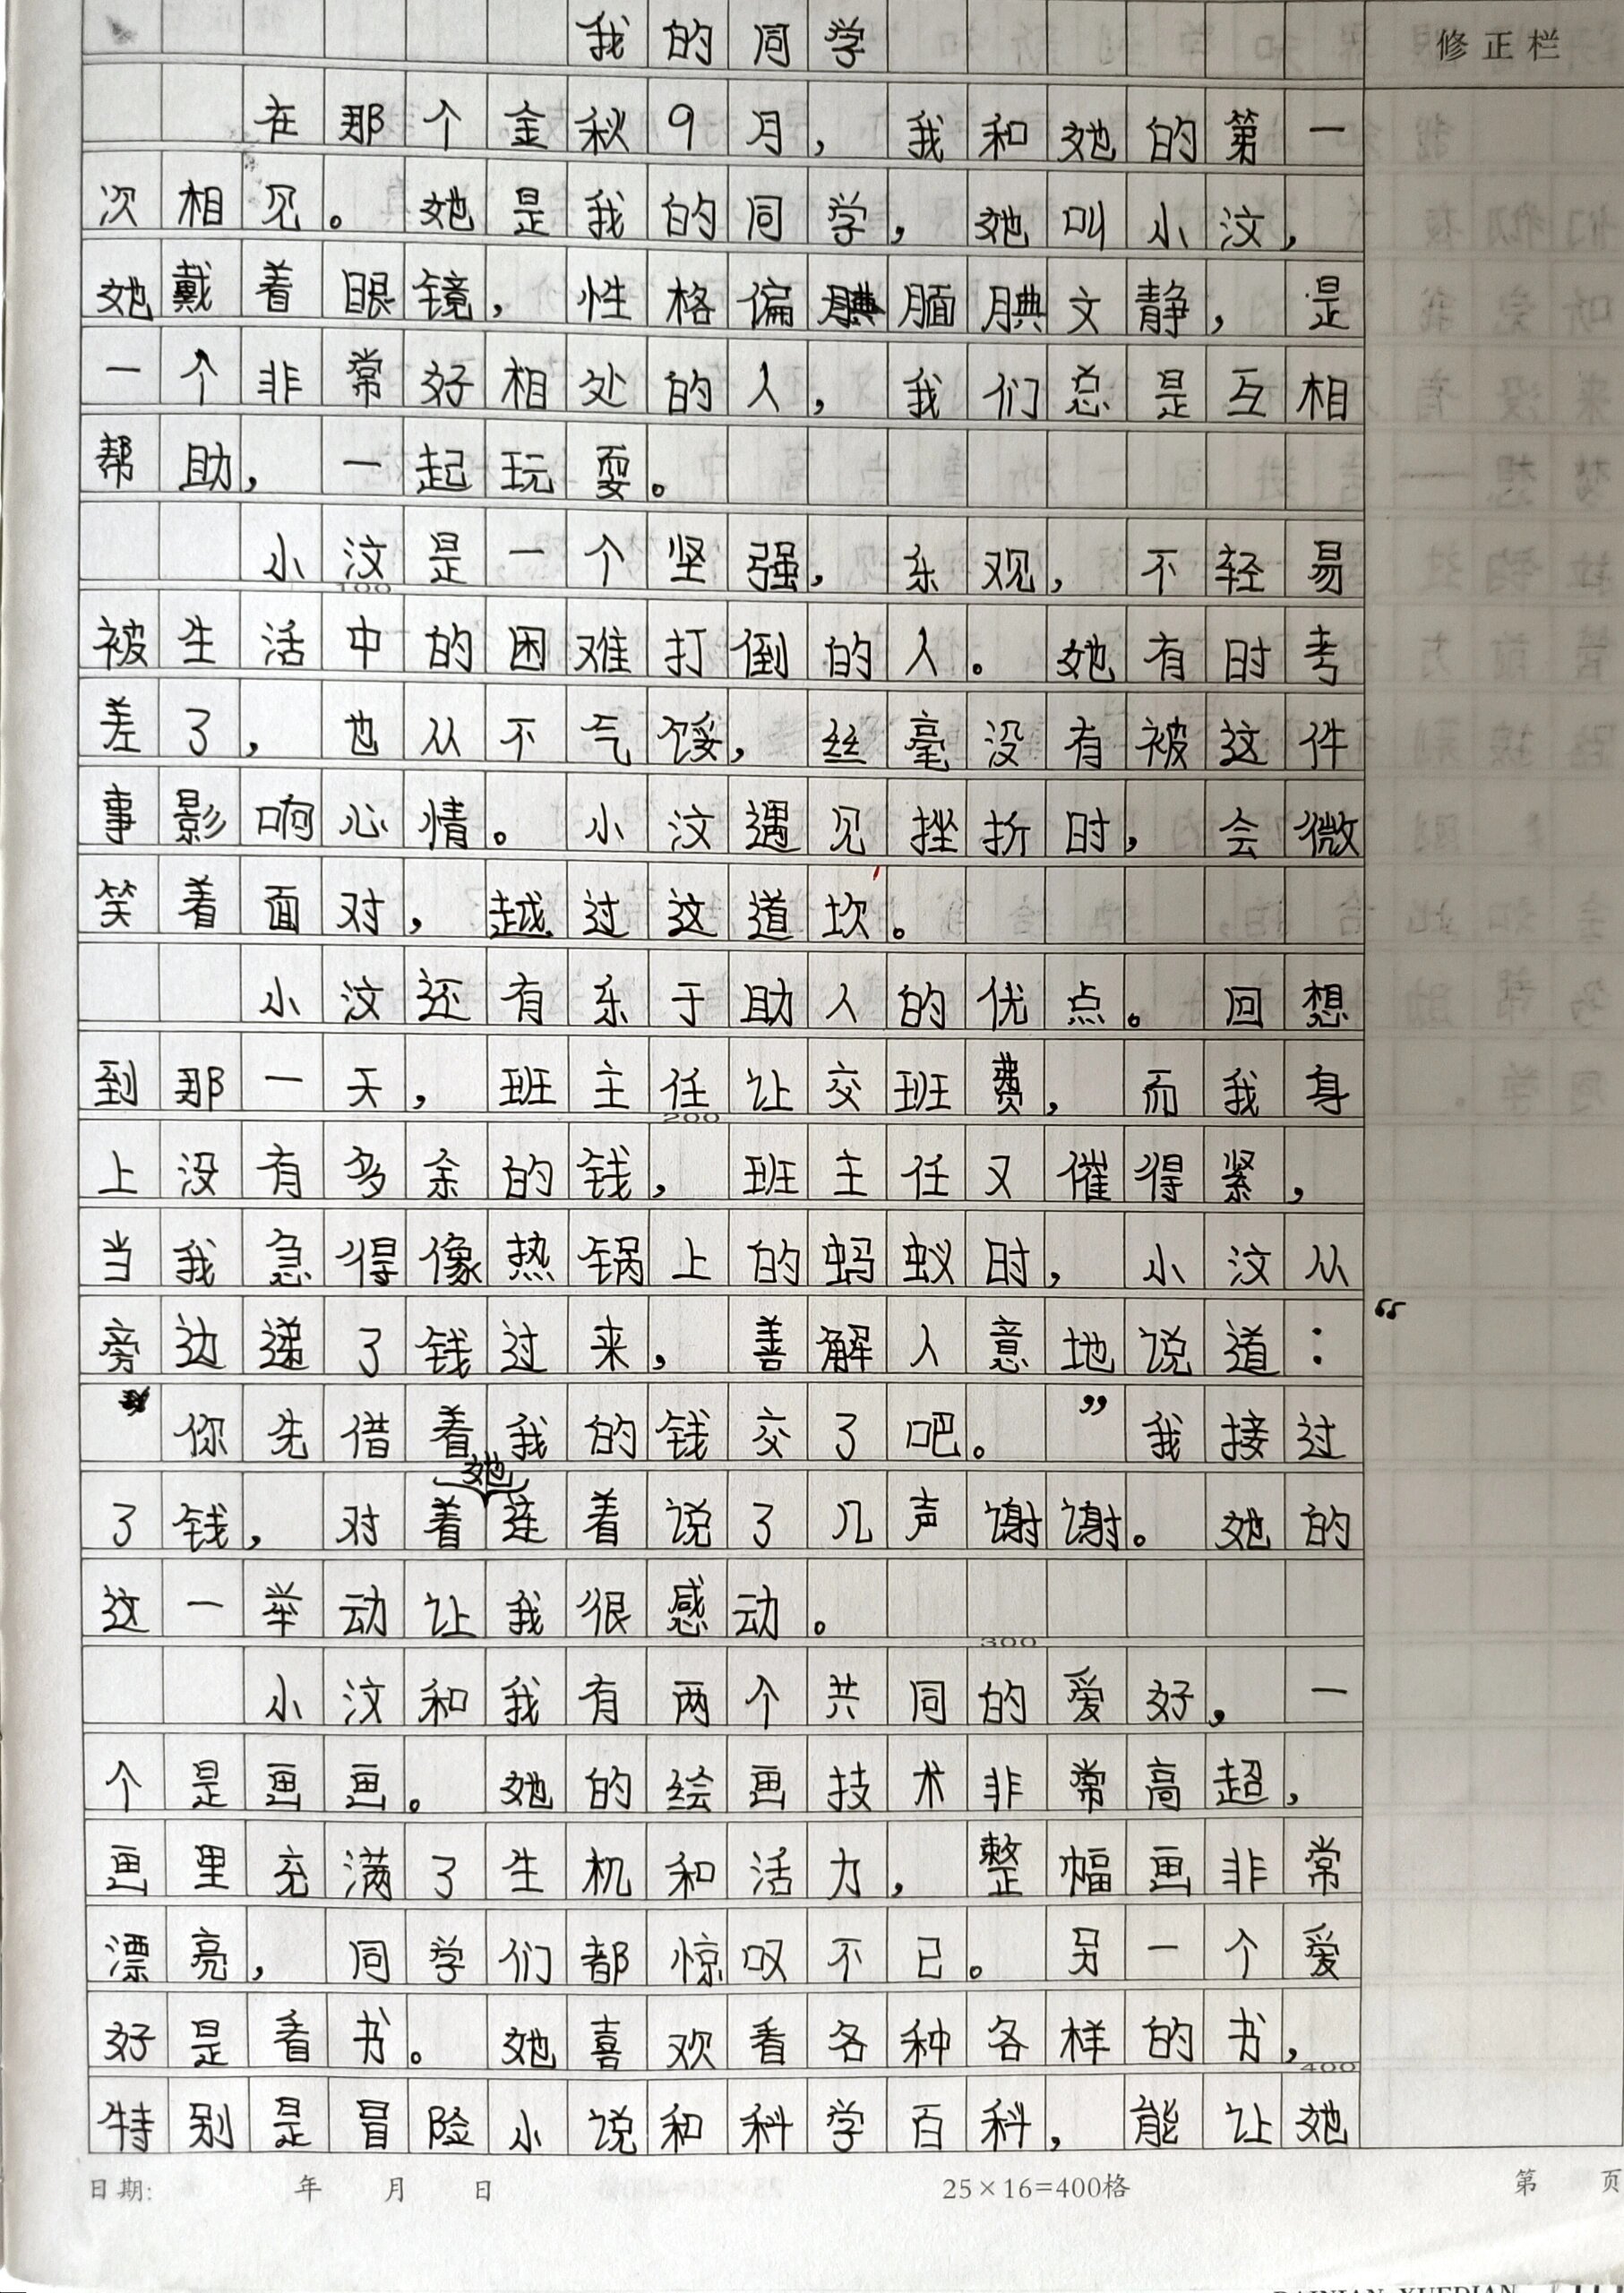 我的同学
修正栏
在那个金秋9月，我和她的第一
次相见。她是我的同学，她叫小汶，
她戴着眼镜，性格偏腼腆文静，是
一个非常好相处的人，我们总是互相
帮助，一起玩耍。
小汶是一个坚强，乐观，不轻易
100
被生活中的困难打倒的人。她有时考
差了，也从不气馁，丝毫没有被这件
事影响心情。小汶遇见挫折时，会微
笑着面对，越过这道坎。
小汶还有乐于助人的优点。回想
到那一天，班主任让交班费，而我身
200
上没有多余的钱，班主任又催得紧，
当我急得像热锅上的蚂蚁时，小汶从
旁边递了钱过来，善解人意地说道：“
你先借着我的钱交了吧。”我接过
了钱，对着她连着说了几声谢谢。她的
这一举动让我很感动。
300
小汶和我有两个共同的爱好，一
个是画画。她的绘画技术非常高超，
画里充满了生机和活力，整幅画非常
漂亮，同学们都惊叹不已。另一个爱
好是看书。她喜欢看各种各样的书，
400
特别是冒险小说和科学百科，能让她
日期： 年 月 日 25×16=400格 第 页